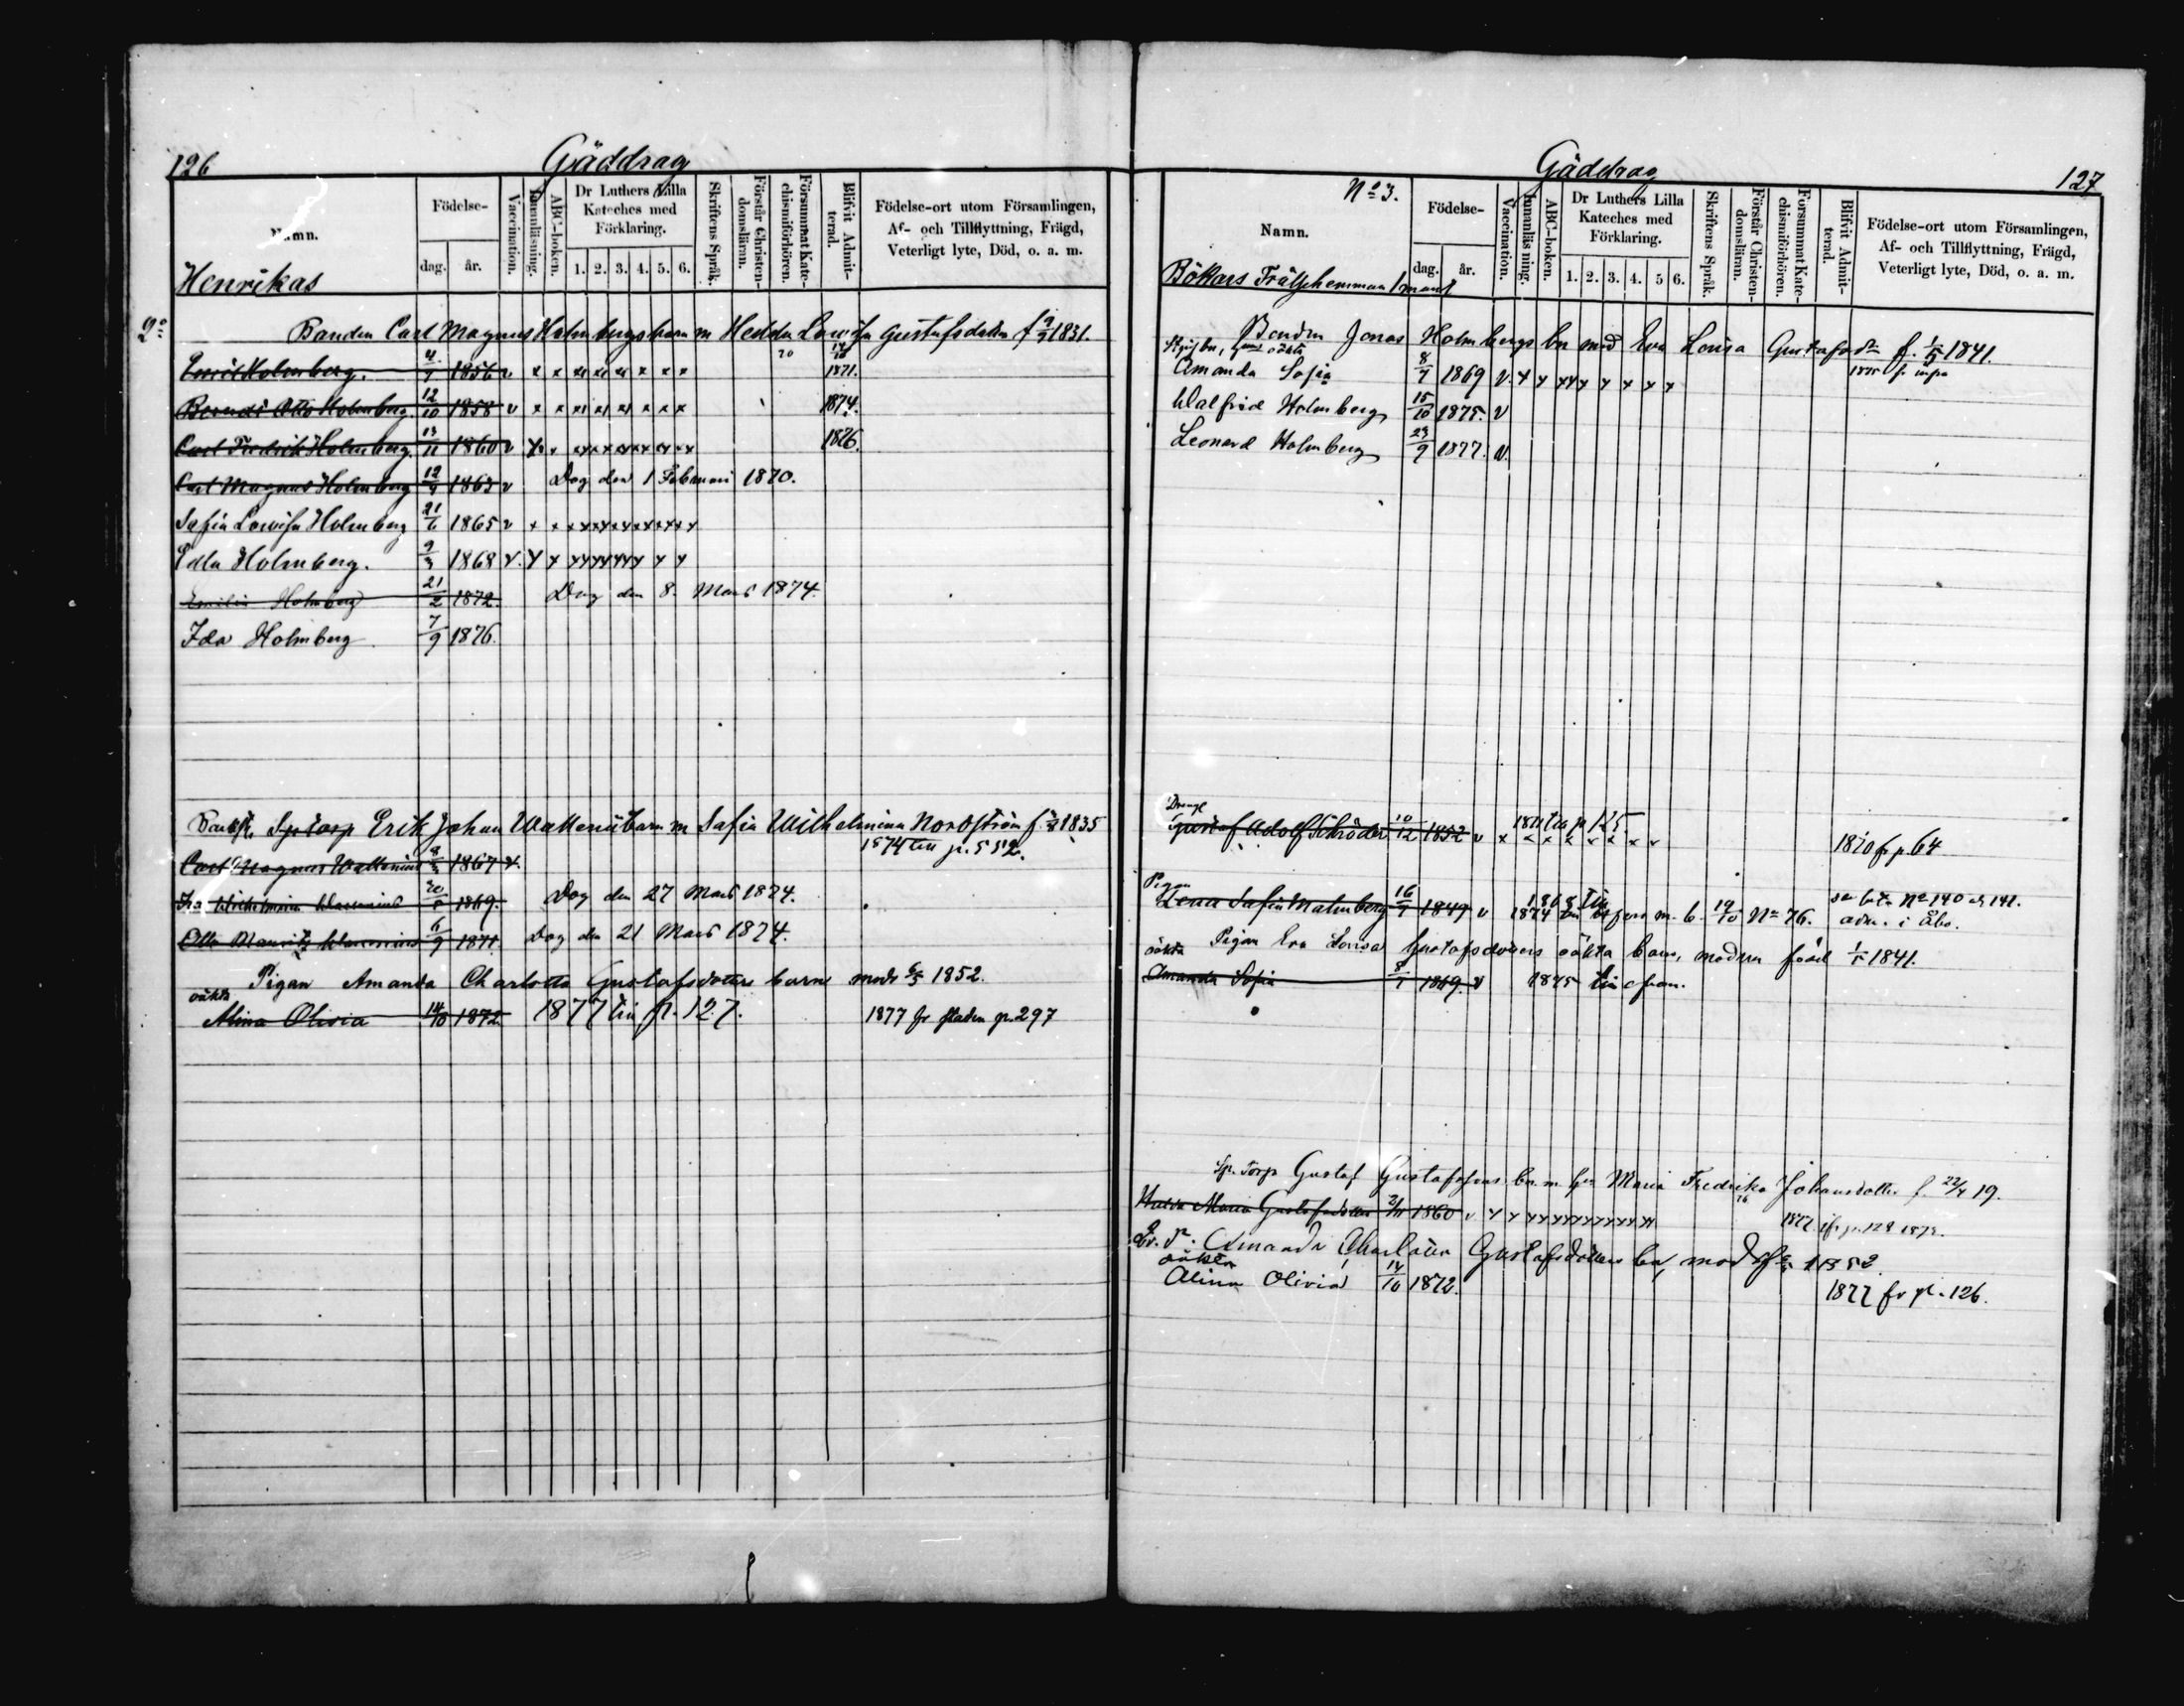 126
Gäddrag
Namn.
Födelse-
dag.
år.
Vaccination.
Innanläsning.
ABC-boken.
Dr Luthers Lilla
Kateches med
Förklaring.
1. 2. 3. 4. 5. 6.
Skriftens Språk.
Förstår Christen-
domsläran.
Försummat Kate-
chismiförhören.
Blifvit Admit-
terad.
Födelse-ort utom Församlingen,
Af- och Tillflyttning, Frägd,
Veterligt lyte, Död, o. a. m.
Henrikas
Bonden Carl Magnus Holmbergs barn m Hedda Lowisa Gustafsdotter f 1831.
Emil Holmberg. 4/7 1856 v x x x x x x x x 1871.
Berndt Otto Holmberg. 12/10 1858 v x x x x x x x x 1874.
Carl Fredrik Holmberg. 13/11 1860 v 1876.
Carl Magnus Holmberg 1863 v Dog den 1 Februari 1870.
Sofia Lowisa Holmberg 21/6 1865 v
Edla Holmberg. 9/3 1868 v.
Emilia Holmberg 21/2 1872. Dog den 8. Mars 1874.
Ida Holmberg 7/9 1876.
Erik Johan Wallenii barn m Sofia Wilhelmina Nordström f 1835
1874 till p. 552.
Carl Magnus Wallenius 1867 v.
Ida Wilhelmina Wallenius 1869. Dog den 27 Mars 1874.
Otto Mauritz Wallenius 6/9 1871. Dog den 21 Mars 1874.
Pigan Amanda Charlotta Gustafsdotters barn modr 1852.
oäkta
Alina Olivia 14/10 1872 1877 till p. 127. 1877 fr staden p. 297
Gäddrag
127
No 3.
Namn.
Födelse-
dag.
år.
Vaccination.
Innanläsning.
ABC-boken.
Dr Luthers Lilla
Kateches med
Förklaring.
1. 2. 3. 4. 5 6.
Skriftens Språk.
Förstår Christen-
domsläran.
Försummat Kate-
chismiförhören.
Blifvit Admit-
terad.
Födelse-ort utom Församlingen,
Af- och Tillflyttning, Frägd,
Veterligt lyte, Död, o. a. m.
Bökars Frälsehemman 1 mant
Bonden Jonas Holmbergs bn med Eva Lovisa Gustafsdr f. 1/5 1841.
oäkta
Amanda Sofia 8/7 1869 v. 1875 fr infra
Walfrid Holmberg 15/10 1875. v
Leonard Holmberg 23/9 1877. v.
Dreng
Gustaf Adolf Schröder 10/12 1852 v 1870 fr p. 64
Pigan
Lena Sofia Malmberg 16/7 1849 v 19/10 No 76. No 140 o 141.
adm. i Åbo.
Pigan Eva Lovisa Gustafsdotters oäkta barn, modren född 1/5 1841.
oäkta
Amanda Sofia 8/7 1869. v 1875 till ofvan.
Sp. torp Gustaf Gustafssons bn m Maria Fredrika Johansdotter f. 22/4 19.
Maria Gustafsdotter 1860 v
Amanda Charlotta Gustafsdotters bn, mod 1852
oäkta
Alina Olivia 14/10 1872. 1877 fr p. 126.